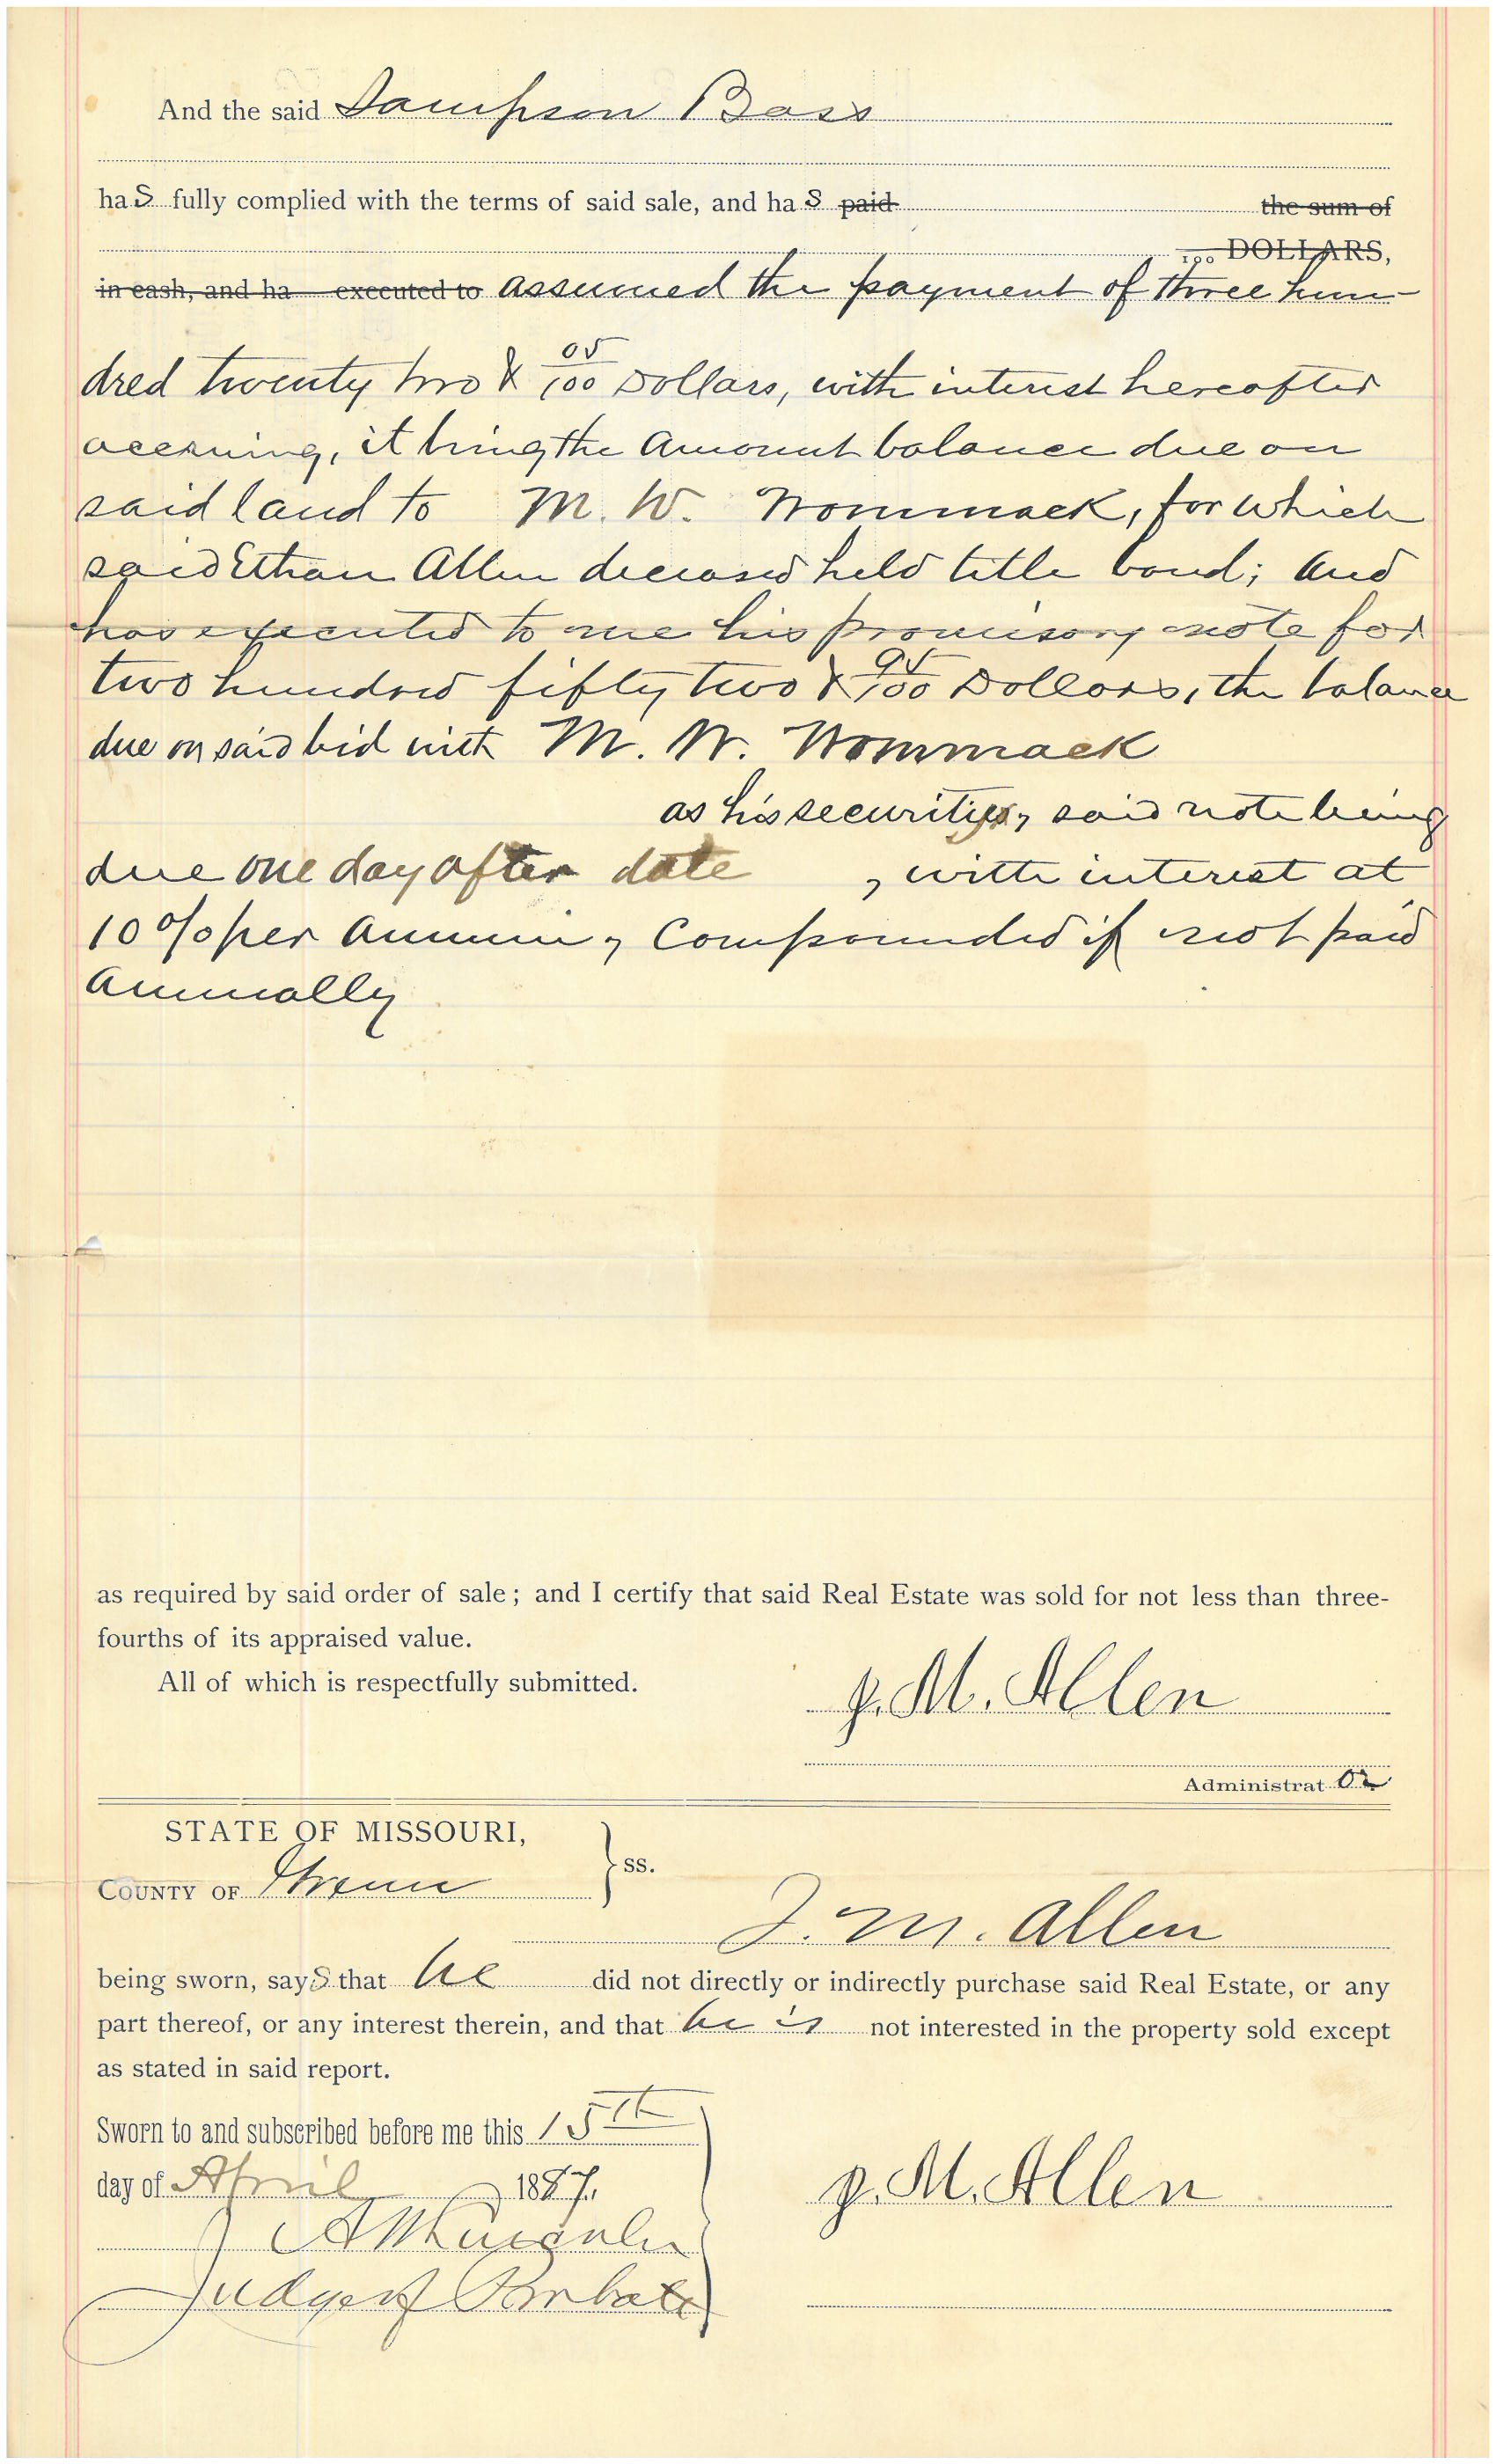 And the said Sampson Bass
has fully complied with the terms of said sale, and has paid the sum of
100 DOLLARS,
in cash, and ha executed to assumed the payment of three hun-
dred twenty two & 05/100 Dollars, with interest hereafter
accruing, it being the amount balance due on
said land to M. W. Wommack, for which
said Ethan Allen deceased held title bond; and
has executed to me his promisory note for
two hundred fifty two & 95/100 Dollars, the balance
due on said bid with M. W. Wommack
as his security, said note being
due one day after date , with interest at
10% per annum, compounded if not paid
annually
as required by said order of sale; and I certify that said Real Estate was sold for not less than three-
fourths of its appraised value.
All of which is respectfully submitted.
J. M. Allen
Administrator
STATE OF MISSOURI,
COUNTY OF Greene } ss.
J. M. Allen
being sworn, says that he did not directly or indirectly purchase said Real Estate, or any
part thereof, or any interest therein, and that he is not interested in the property sold except
as stated in said report.
Sworn to and subscribed before me this 15th
day of April 1887.
J. M. Allen
Judge of Probate